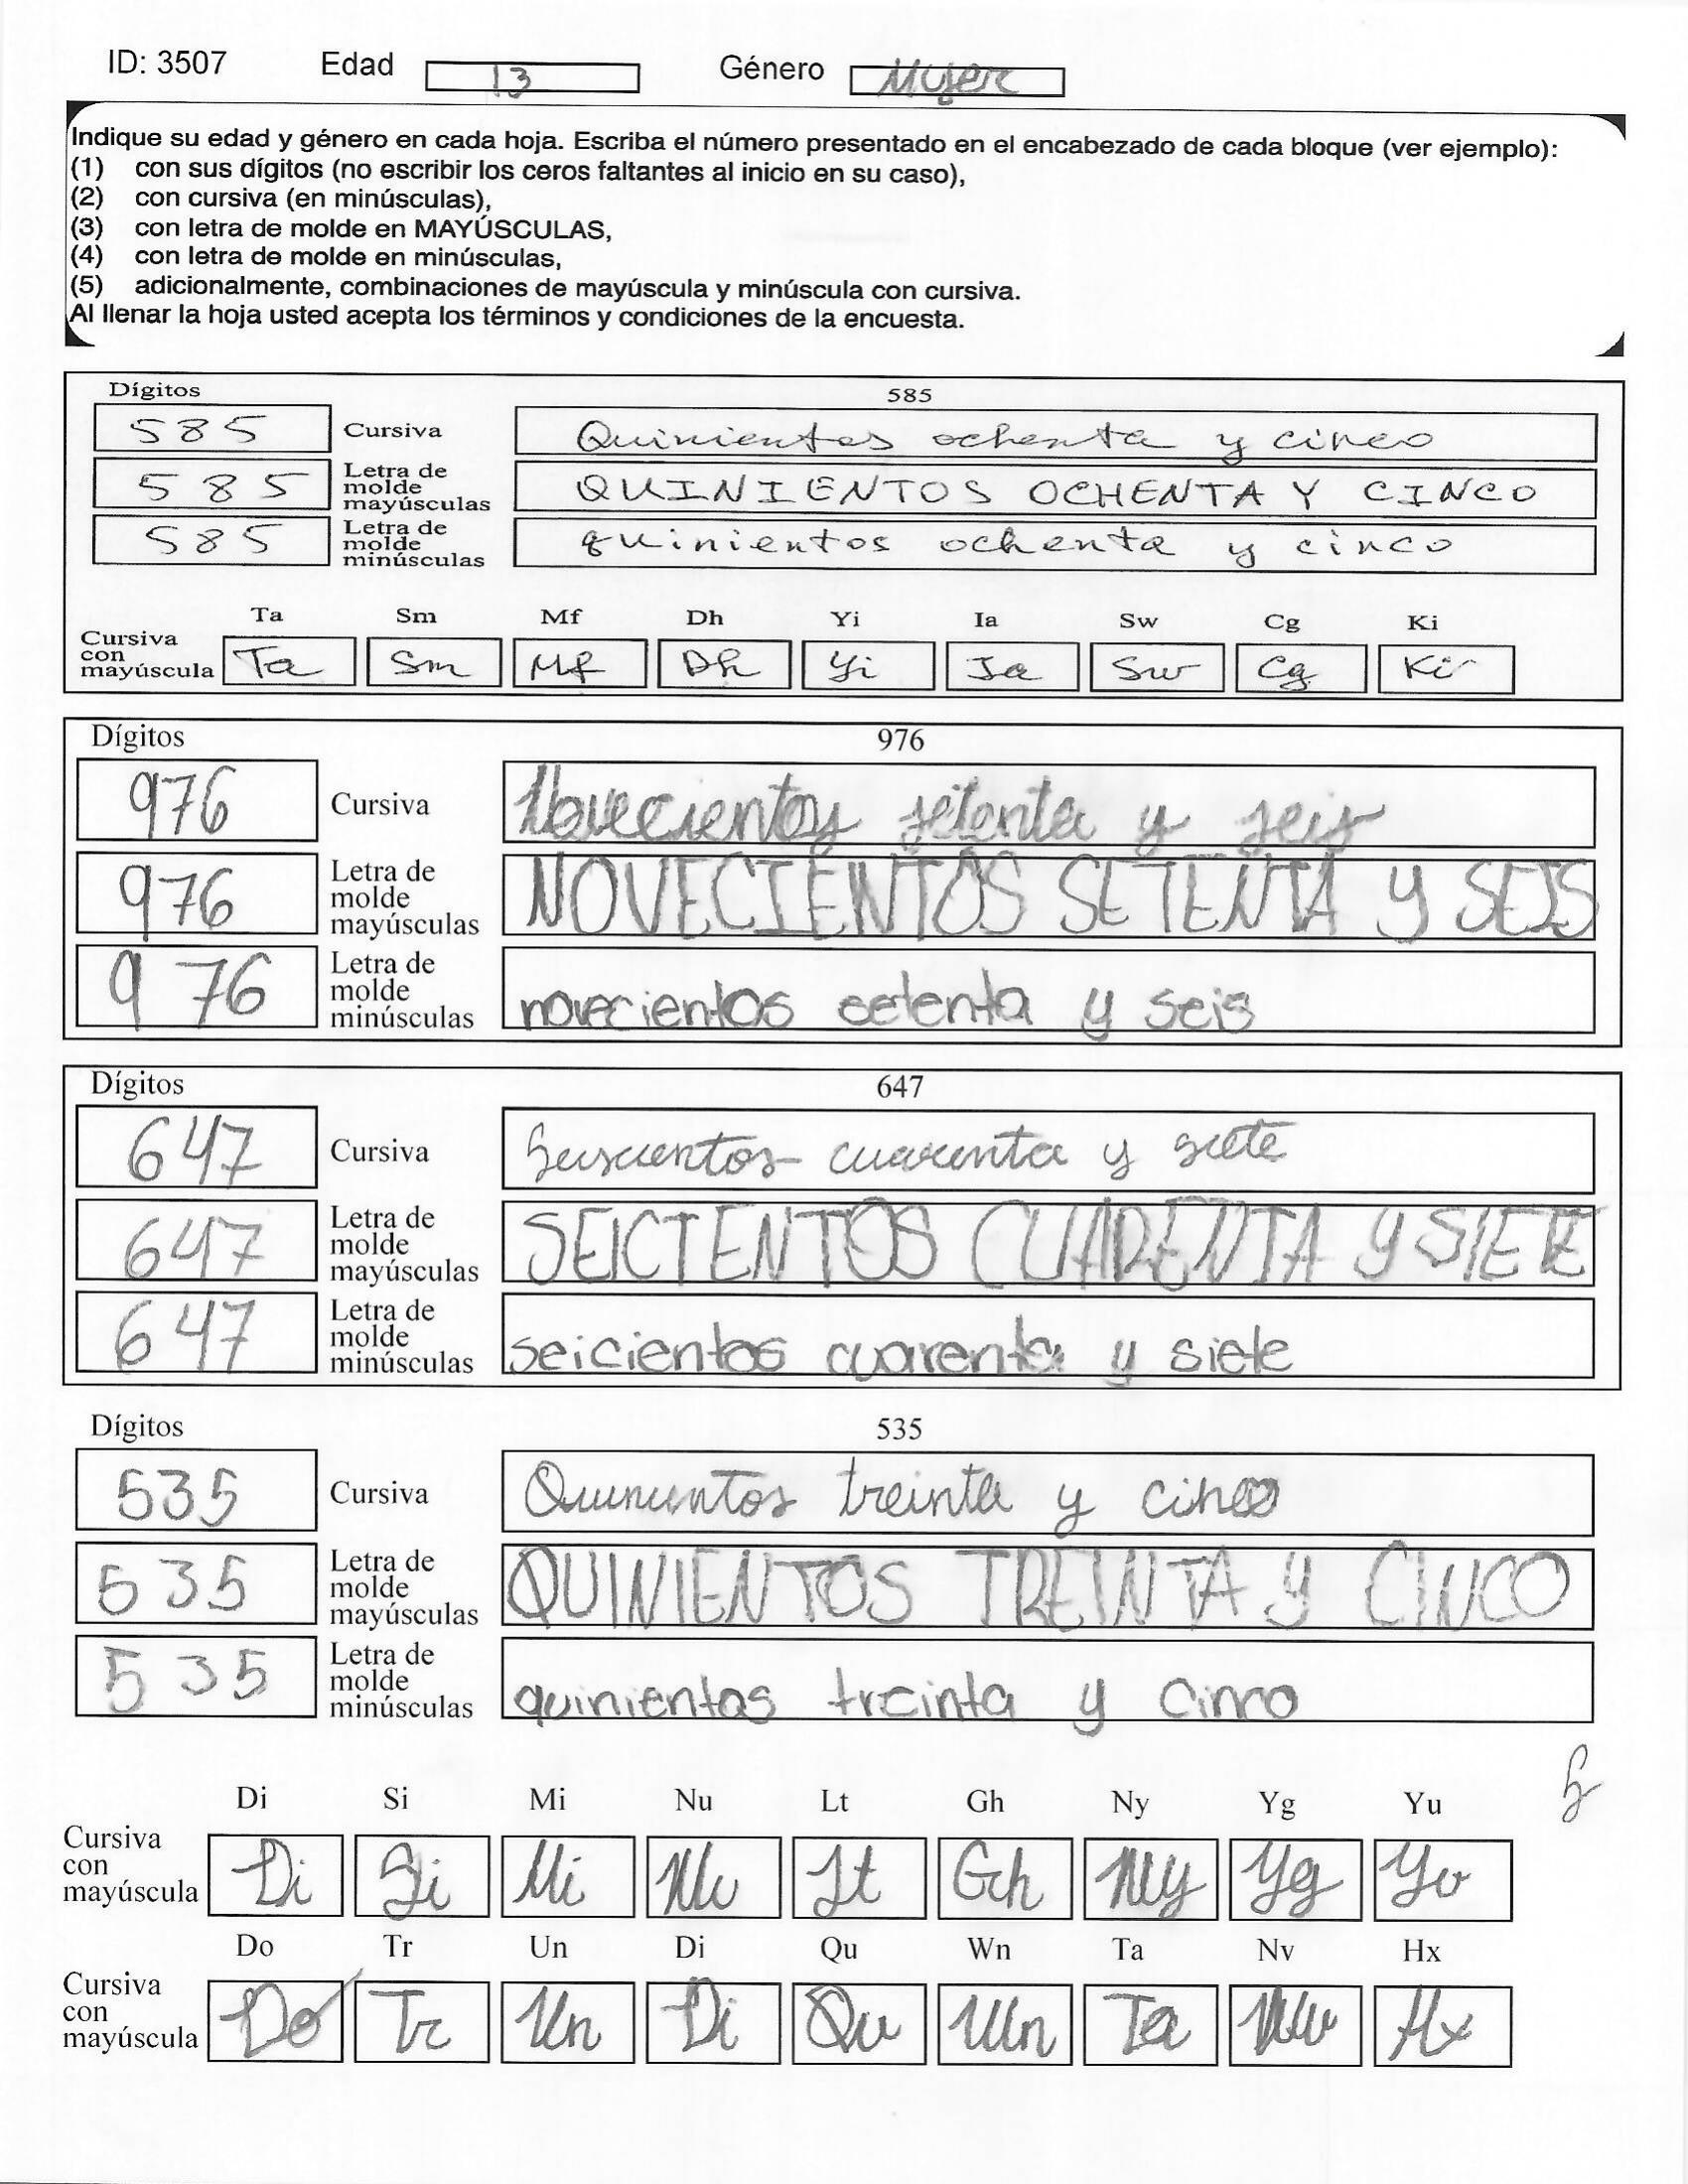 ID: 3507 Edad 13 Género Mujer
Indique su edad y género en cada hoja. Escriba el número presentado en el encabezado de cada bloque (ver ejemplo):
(1) con sus dígitos (no escribir los ceros faltantes al inicio en su caso),
(2) con cursiva (en minúsculas),
(3) con letra de molde en MAYÚSCULAS,
(4) con letra de molde en minúsculas,
(5) adicionalmente, combinaciones de mayúscula y minúscula con cursiva.
Al llenar la hoja usted acepta los términos y condiciones de la encuesta.
Dígitos 585
585 Cursiva Quinientos ochenta y cinco
585 Letra de molde mayúsculas QUINIENTOS OCHENTA Y CINCO
585 Letra de molde minúsculas quinientos ochenta y cinco
Ta Sm Mf Dh Yi Ia Sw Cg Ki
Cursiva con mayúscula Ta Sm Mf Dh Yi Ia Sw Cg Ki
Dígitos 976
976 Cursiva Novecientos setenta y seis
976 Letra de molde mayúsculas NOVECIENTOS SETENTA Y SEIS
976 Letra de molde minúsculas novecientos setenta y seis
Dígitos 647
647 Cursiva Seiscientos cuarenta y siete
647 Letra de molde mayúsculas SEICIENTOS CUARENTA Y SIETE
647 Letra de molde minúsculas seicientos cuarenta y siete
Dígitos 535
535 Cursiva Quinientos treinta y cinco
535 Letra de molde mayúsculas QUINIENTOS TREINTA Y CINCO
535 Letra de molde minúsculas quinientos treinta y cinco
Di Si Mi Nu Lt Gh Ny Yg Yu
Cursiva con mayúscula Di Si Mi Nu Lt Gh Ny Yg Yu
Do Tr Un Di Qu Wn Ta Nv Hx
Cursiva con mayúscula Do Tr Un Di Qu Wn Ta Nv Hx